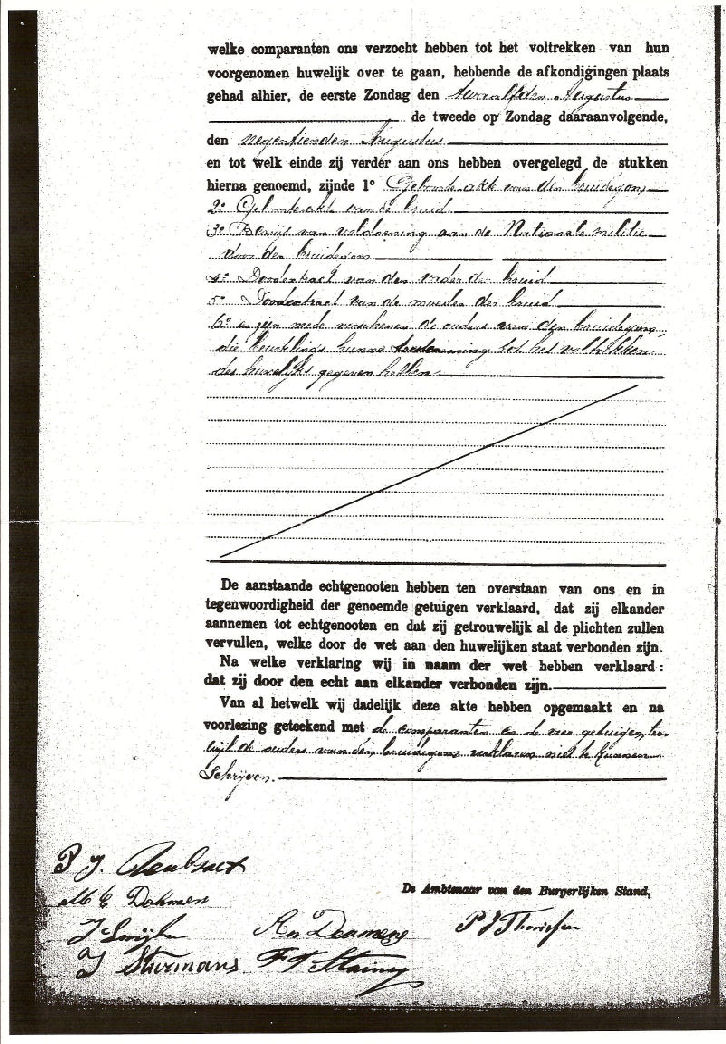 welke comparanten ons verzocht hebben tot het voltrekken van hun
voorgenomen huwelijk over te gaan, hebbende de afkondigingen plaats
gehad alhier, de eerste Zondag den twaalfden Augustus
de tweede op Zondag daaraanvolgende,
den negentienden Augustus
en tot welk einde zij verder aan ons hebben overgelegd de stukken
hierna genoemd, zijnde 1° Geboorte akte van den bruidegom
2° Geboorteakte van de bruid
3° Bewijs van voldoening aan de Nationale militie
voor den bruidegom
4° van den vader der bruid
5° van de moeder der bruid
6° zijn mede verschenen de ouders van den bruidegom,
die hunne toestemming tot het voltrekken
des huwelijks gegeven hebben.
De aanstaande echtgenooten hebben ten overstaan van ons en in
tegenwoordigheid der genoemde getuigen verklaard, dat zij elkander
aannemen tot echtgenooten en dat zij getrouwelijk al de plichten zullen
vervullen, welke door de wet aan den huwelijken staat verbonden zijn.
Na welke verklaring wij in naam der wet hebben verklaard:
dat zij door den echt aan elkander verbonden zijn.
Van al hetwelk wij dadelijk deze akte hebben opgemaakt en na
voorlezing geteekend met de comparanten en de getuigen, ter-
wijl de ouders van den bruidegom verklaren niet te kunnen
schrijven.
P J.
De Ambtenaar van den Burgerlijken Stand,
Dahmen
J
J Stiermans